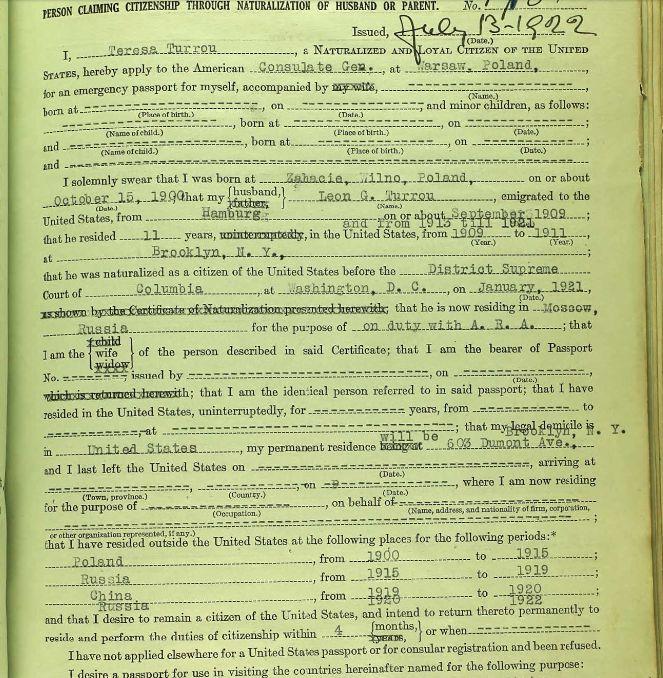 PERSON CLAIMING CITIZENSHIP THROUGH NATURALIZATION OF HUSBAND OR PARENT. No.
Issued, July 13-1922
(Date.)
I, Teresa Turrou, a NATURALIZED AND LOYAL CITIZEN OF THE UNITED
STATES, hereby apply to the American Consulate Gen., at Warsaw, Poland,
for an emergency passport for myself, accompanied by my wife,
(Name.)
born at , on ; and minor children, as follows:
(Place of birth.) (Date.)
, born at , on
(Name of child.) (Place of birth.) (Date.)
and , born at , on ;
(Name of child.) (Place of birth.) (Date.)
and
I solemnly swear that I was born at Zahacie, Wilno, Poland, on or about
October 15, 1900 that my {husband, father,} Leon G. Turrou, emigrated to the
(Date.) (Name.)
United States, from Hamburg on or about September 1909;
and from 1913 till 1921
that he resided 11 years, uninterruptedly, in the United States, from 1909 to 1911
(Year.) (Year.)
at Brooklyn, N. Y., ;
that he was naturalized as a citizen of the United States before the District Supreme
Court of Columbia at Washington, D. C., on January, 1921,
(Date.)
as shown by the Certificate of Naturalization presented herewith; that he is now residing in Moscow,
Russia for the purpose of on duty with A. R. A.; that
I am the {child wife widow} of the person described in said Certificate; that I am the bearer of Passport
No. issued by , on ,
(Date.)
which is returned herewith; that I am the identical person referred to in said passport; that I have
resided in the United States, uninterruptedly, for years, from to
, at ; that my legal domicile is
Brooklyn, N. Y.
in United States, my permanent residence being at will be 603 Dumont Ave.,
and I last left the United States on , arriving at
(Date.)
, , on , where I am now residing
(Town, province.) (Country.) (Date.)
for the purpose of , on behalf of
(Occupation.) (Name, address, and nationality of firm, corporation,
;
or other organization represented, if any.)
that I have resided outside the United States at the following places for the following periods:*
Poland, from 1900 to 1915;
Russia, from 1915 to 1919;
China, from 1919 to 1920;
Russia 1920 1922
and that I desire to remain a citizen of the United States, and intend to return thereto permanently to
reside and perform the duties of citizenship within 4 {months, years,} or when
I have not applied elsewhere for a United States passport or for consular registration and been refused.
I desire a passport for use in visiting the countries hereinafter named for the following purpose: